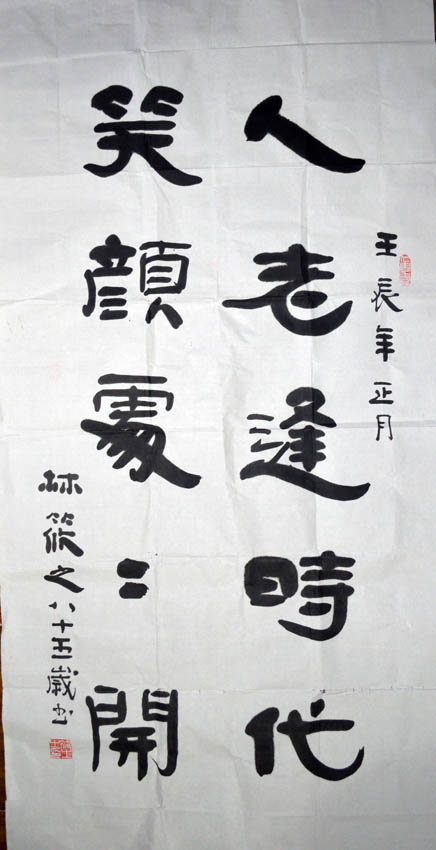 壬辰年正月
人老逢時代
笑顏處〻開
林筱之八十五歲书